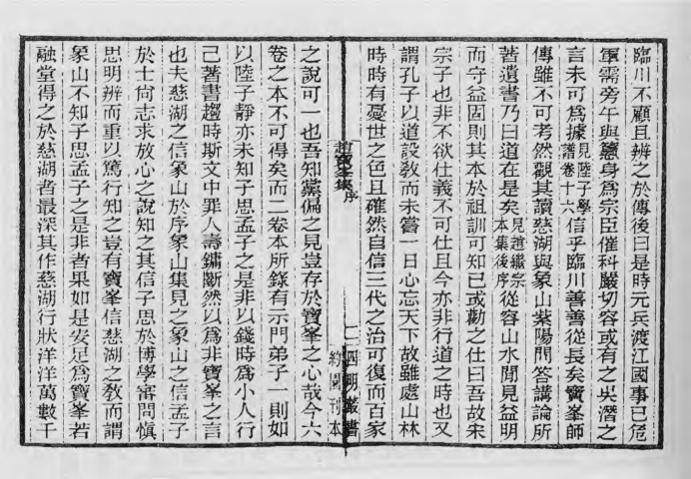 臨川不顧且辨之於傳後曰是時元兵渡江國事已危
軍需旁午與身爲宗臣催科嚴切容或有之吳潛之
言未可爲據見陸子學譜卷十六信乎臨川善善從長矣寶峯師
傳雖不可考然觀其讀慈湖與象山紫陽問答講論所
著遺書乃曰道在是矣見趙繼宗本集後序從容山水閒見益明
而守益固則其本於祖訓可知已或勸之仕曰吾故宋
宗子也非不欲仕義不可仕且今亦非行道之時也又
謂孔子以道設敎而未嘗一日心忘天下故雖處山林
時時有憂世之色且確然自信三代之治可復而百家
趙寶峯集序
二
四明叢書
約園刊本
之說可一也吾知黨偏之見豈存於寶峯之心哉今六
卷之本不可得矣而二卷本所錄有示門弟子一則如
以陸子靜亦未知子思孟子之是非以錢時爲小人行
己著書趨時斯文中罪人壽鏞斷然以爲非寶峯之言
也夫慈湖之信象山於序象山集見之象山之信孟子
於士尙志求放心之說知之其信子思於博學審問愼
思明辨而重以篤行知之豈有寶峯信慈湖之敎而謂
象山不知子思孟子之是非者果如是安足爲寶峯若
融堂得之於慈湖者最深其作慈湖行狀洋洋萬數千